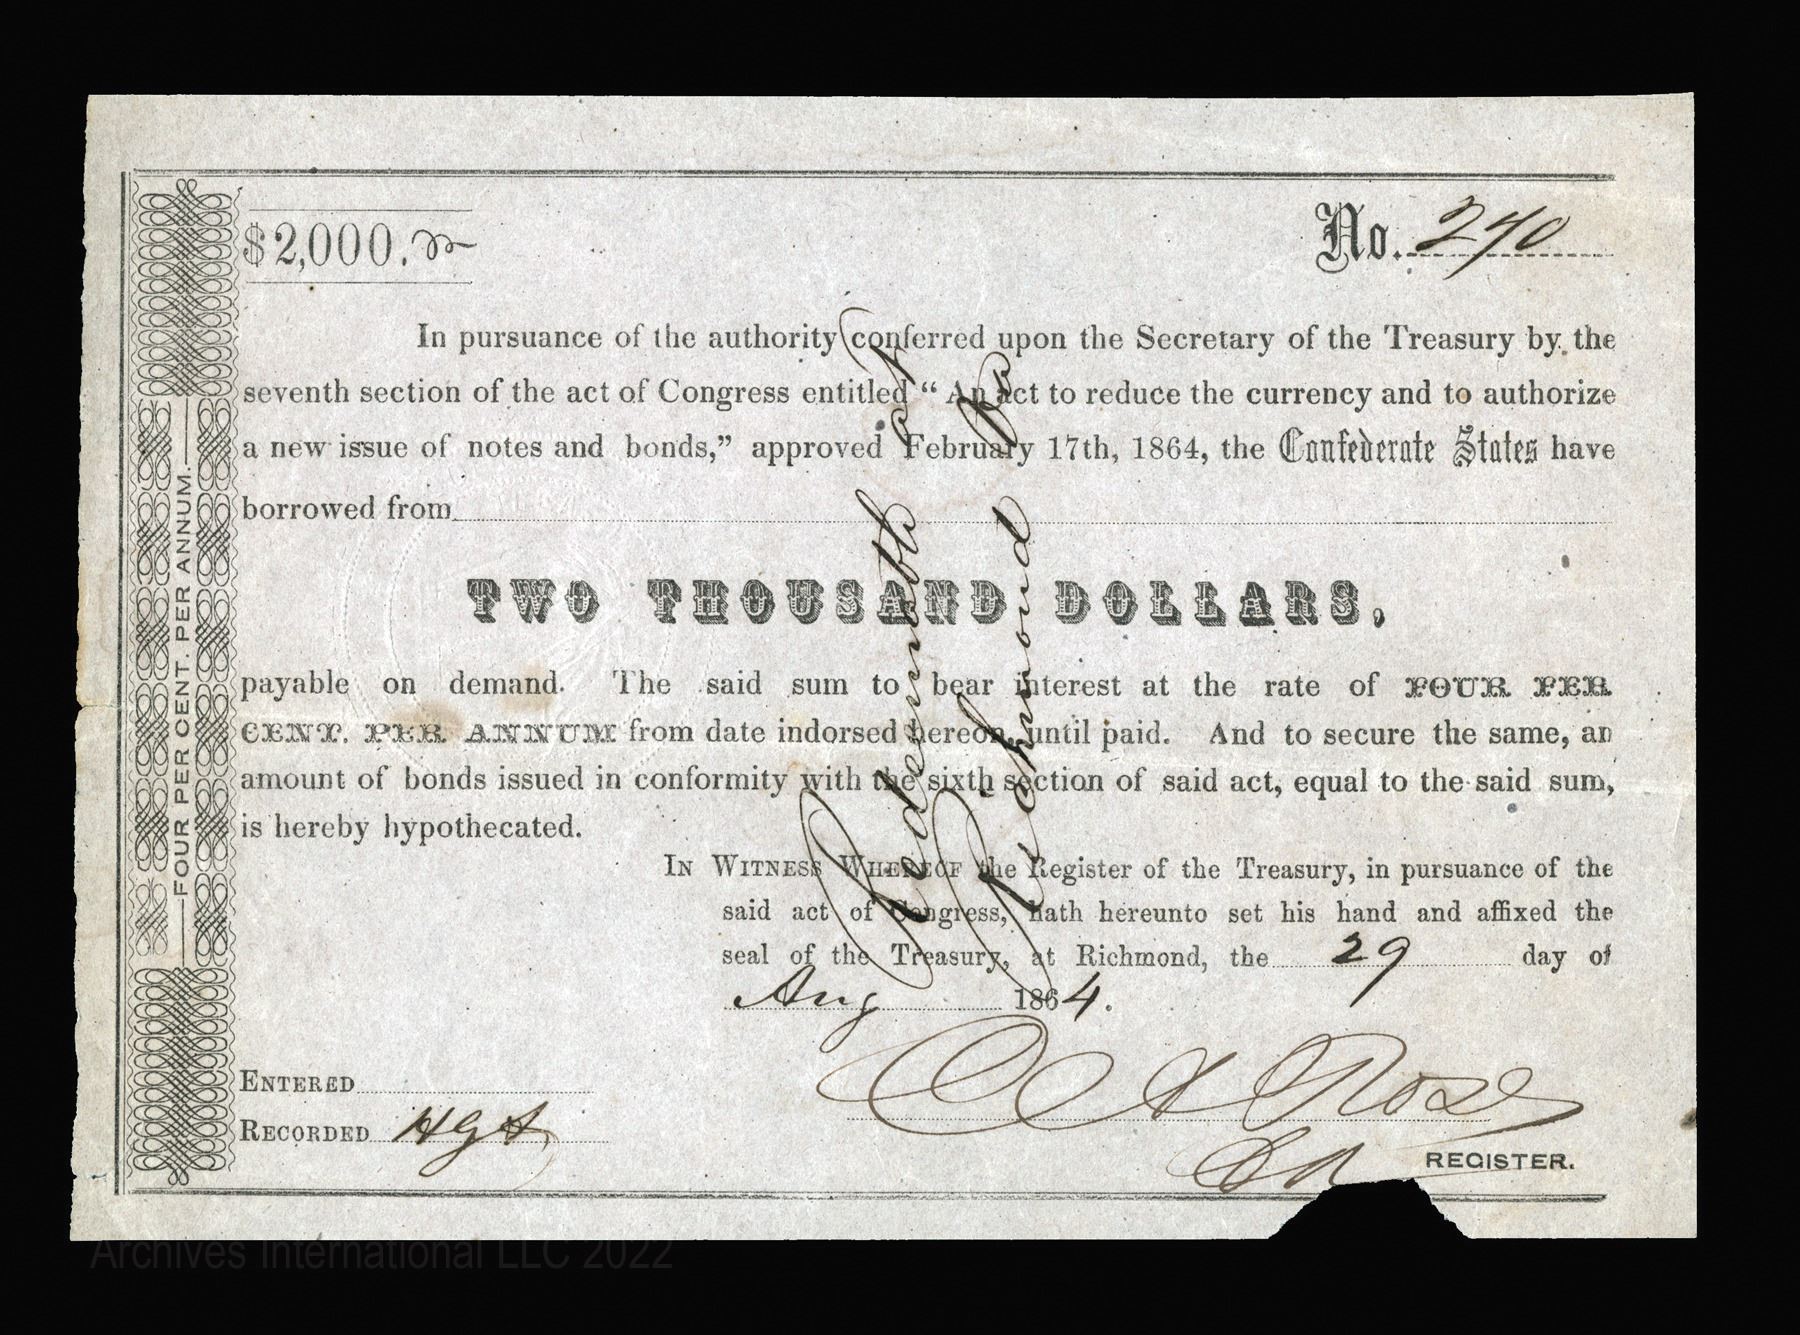 $2,000.
No. 270
In pursuance of the authority conferred upon the Secretary of the Treasury by the
seventh section of the act of Congress entitled “ An act to reduce the currency and to authorize
a new issue of notes and bonds,” approved February 17th, 1864, the Confederate States have
borrowed from
TWO THOUSAND DOLLARS,
payable on demand. The said sum to bear interest at the rate of FOUR PER
CENT. PER ANNUM from date indorsed hereon, until paid. And to secure the same, an
amount of bonds issued in conformity with the sixth section of said act, equal to the said sum,
is hereby hypothecated.
IN WITNESS WHEREOF the Register of the Treasury, in pursuance of the
said act of Congress, hath hereunto set his hand and affixed the
seal of the Treasury, at Richmond, the 29 day of
Aug 1864.
ENTERED
RECORDED
Rose
REGISTER.
FOUR PER CENT. PER ANNUM.
Redeemable at
Richmond Va
Archives International LLC 2022